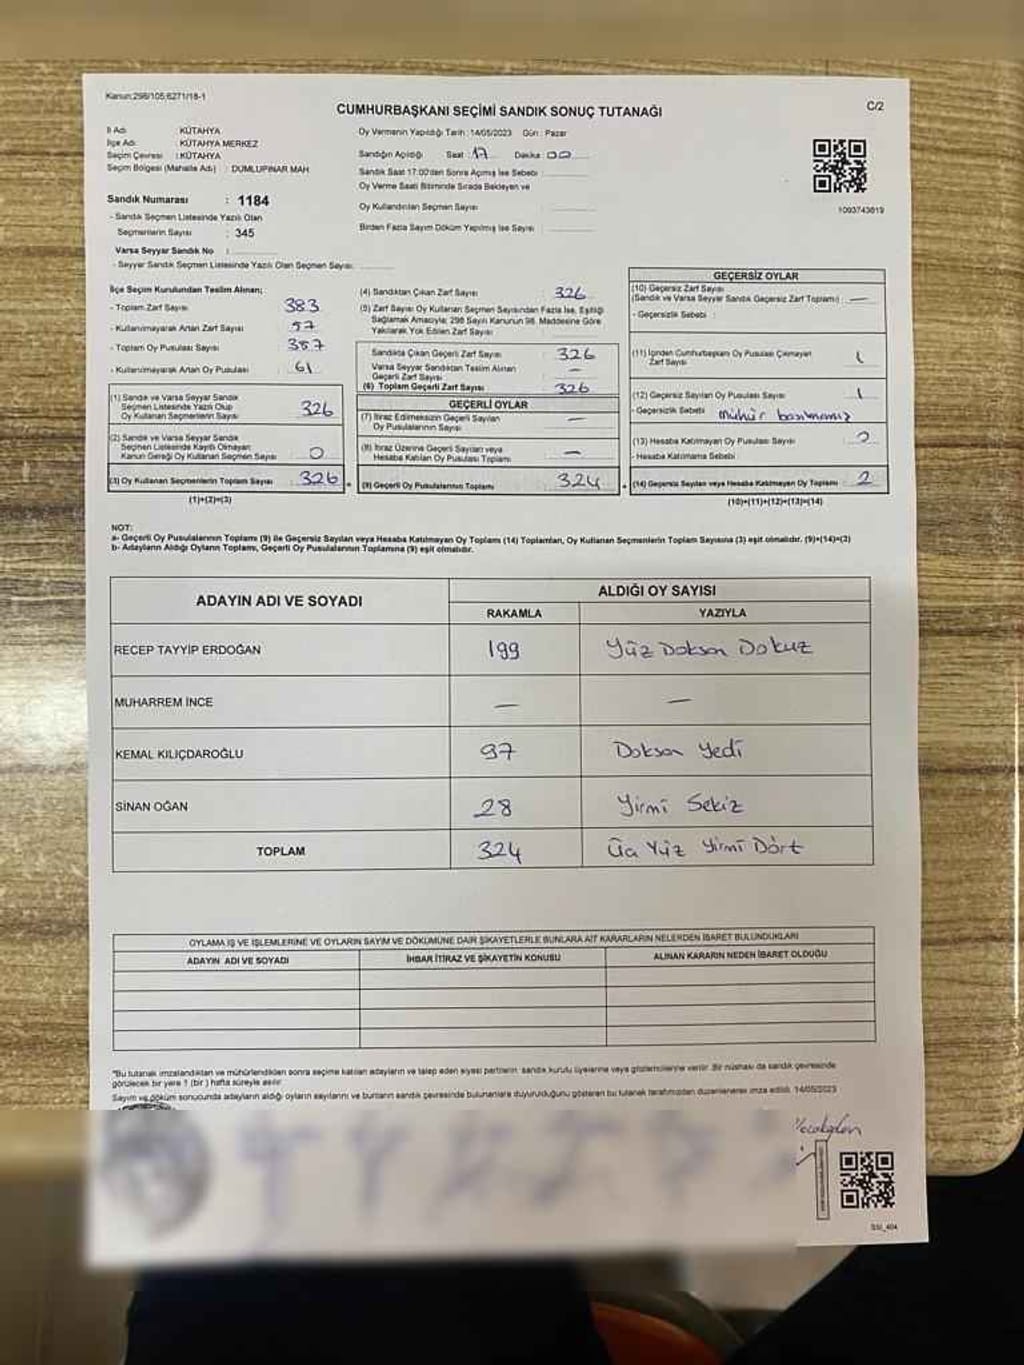 Kanun:298/105;6271/18-1
CUMHURBAŞKANI SEÇİMİ SANDIK SONUÇ TUTANAĞI
C/2
İl Adı : KÜTAHYA
İlçe Adı : KÜTAHYA MERKEZ
Seçim Çevresi : KÜTAHYA
Seçim Bölgesi (Mahalle Adı) : DUMLUPINAR MAH
Sandık Numarası : 1184
- Sandık Seçmen Listesinde Yazılı Olan
Seçmenlerin Sayısı : 345
Varsa Seyyar Sandık No :
- Seyyar Sandık Seçmen Listesinde Yazılı Olan Seçmen Sayısı:
Oy Vermenin Yapıldığı Tarih : 14/05/2023 Gün : Pazar
Sandığın Açıldığı Saat : 17 Dakika : 00
Sandık Saat 17:00'den Sonra Açımış İse Sebebi :
Oy Verme Saati Bitiminde Sırada Bekleyen ve
Oy Kullandırılan Seçmen Sayısı :
Birden Fazla Sayım Döküm Yapılmış İse Sayısı :
1093743819
İlçe Seçim Kurulundan Teslim Alınan;
- Toplam Zarf Sayısı : 383
- Kullanılmayarak Artan Zarf Sayısı : 57
- Toplam Oy Pusulası Sayısı : 387
- Kullanılmayarak Artan Oy Pusulası : 61
(1) Sandık ve Varsa Seyyar Sandık
Seçmen Listesinde Yazılı Olup
Oy Kullanan Seçmenlerin Sayısı : 326
(2) Sandık ve Varsa Seyyar Sandık
Seçmen Listesinde Kayıtlı Olmayan
Kanun Gereği Oy Kullanan Seçmen Sayısı : 0
(3) Oy Kullanan Seçmenlerin Toplam Sayısı : 326
(1)+(2)=(3)
(4) Sandıktan Çıkan Zarf Sayısı : 326
(5) Zarf Sayısı Oy Kullanan Seçmen Sayısından Fazla İse, Eşitliği
Sağlamak Amacıyla; 298 Sayılı Kanunun 98. Maddesine Göre
Yakılarak Yok Edilen Zarf Sayısı :
Sandıkta Çıkan Geçerli Zarf Sayısı : 326
Varsa Seyyar Sandıktan Teslim Alınan
Geçerli Zarf Sayısı : —
(6) Toplam Geçerli Zarf Sayısı : 326
GEÇERLİ OYLAR
(7) İtiraz Edilmeksizin Geçerli Sayılan
Oy Pusulalarının Sayısı : —
(8) İtiraz Üzerine Geçerli Sayılan veya
Hesaba Katılan Oy Pusulası Toplamı : —
(9) Geçerli Oy Pusulalarının Toplamı : 324
GEÇERSİZ OYLAR
(10) Geçersiz Zarf Sayısı
(Sandık ve Varsa Seyyar Sandık Geçersiz Zarf Toplamı) : —
- Geçersizlik Sebebi :
(11) İçinden Cumhurbaşkanı Oy Pusulası Çıkmayan
Zarf Sayısı : 1
(12) Geçersiz Sayılan Oy Pusulası Sayısı : 1
- Geçersizlik Sebebi : mühür basılmamış
(13) Hesaba Katılmayan Oy Pusulası Sayısı :
- Hesaba Katılmama Sebebi
(14) Geçersiz Sayılan veya Hesaba Katılmayan Oy Toplamı : 2
(10)+(11)+(12)+(13)=(14)
NOT:
a- Geçerli Oy Pusulalarının Toplamı (9) ile Geçersiz Sayılan veya Hesaba Katılmayan Oy Toplamı (14) Toplamları, Oy Kullanan Seçmenlerin Toplam Sayısına (3) eşit olmalıdır. (9)+(14)=(3)
b- Adayların Aldığı Oyların Toplamı, Geçerli Oy Pusulalarının Toplamına (9) eşit olmalıdır.
ADAYIN ADI VE SOYADI
ALDIĞI OY SAYISI
RAKAMLA YAZIYLA
RECEP TAYYİP ERDOĞAN 199 Yüz Doksan Dokuz
MUHARREM İNCE — —
KEMAL KILIÇDAROĞLU 97 Doksan Yedi
SİNAN OĞAN 28 Yirmi Sekiz
TOPLAM 324 Üç Yüz Yirmi Dört
OYLAMA İŞ VE İŞLEMLERİNE VE OYLARIN SAYIM VE DÖKÜMÜNE DAİR ŞİKAYETLERLE BUNLARA AİT KARARLARIN NELERDEN İBARET BULUNDUKLARI
ADAYIN ADI VE SOYADI İHBAR İTİRAZ VE ŞİKAYETİN KONUSU ALINAN KARARIN NEDEN İBARET OLDUĞU
*Bu tutanak imzalandıktan ve mühürlendikten sonra seçime katılan adayların ve talep eden siyasi partilerin sandık kurulu üyelerine veya gözlemcilerine verilir. Bir nüshası da sandık çevresinde
görülecek bir yere 1 (bir) hafta süreyle asılır.
Sayım ve döküm sonucunda adayların aldığı oyların sayılarını ve bunların sandık çevresinde bulunanlara duyurulduğunu gösteren bu tutanak tarafımızdan düzenlenerek imza edildi. 14/05/2023
SSI_404